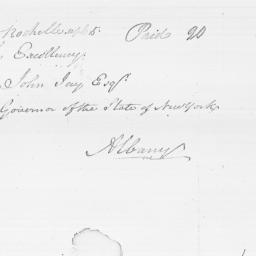 Rochelle Paid 20
Excellency
John Jay Esqr.
Governor of the State of New York
Albany